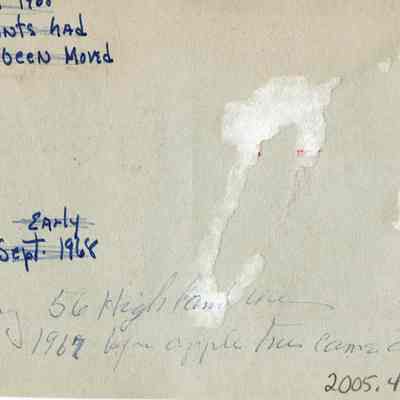 1968
nts had
been moved
Early
Sept. 1968
56 Highland
196 apple trees came
2005.4